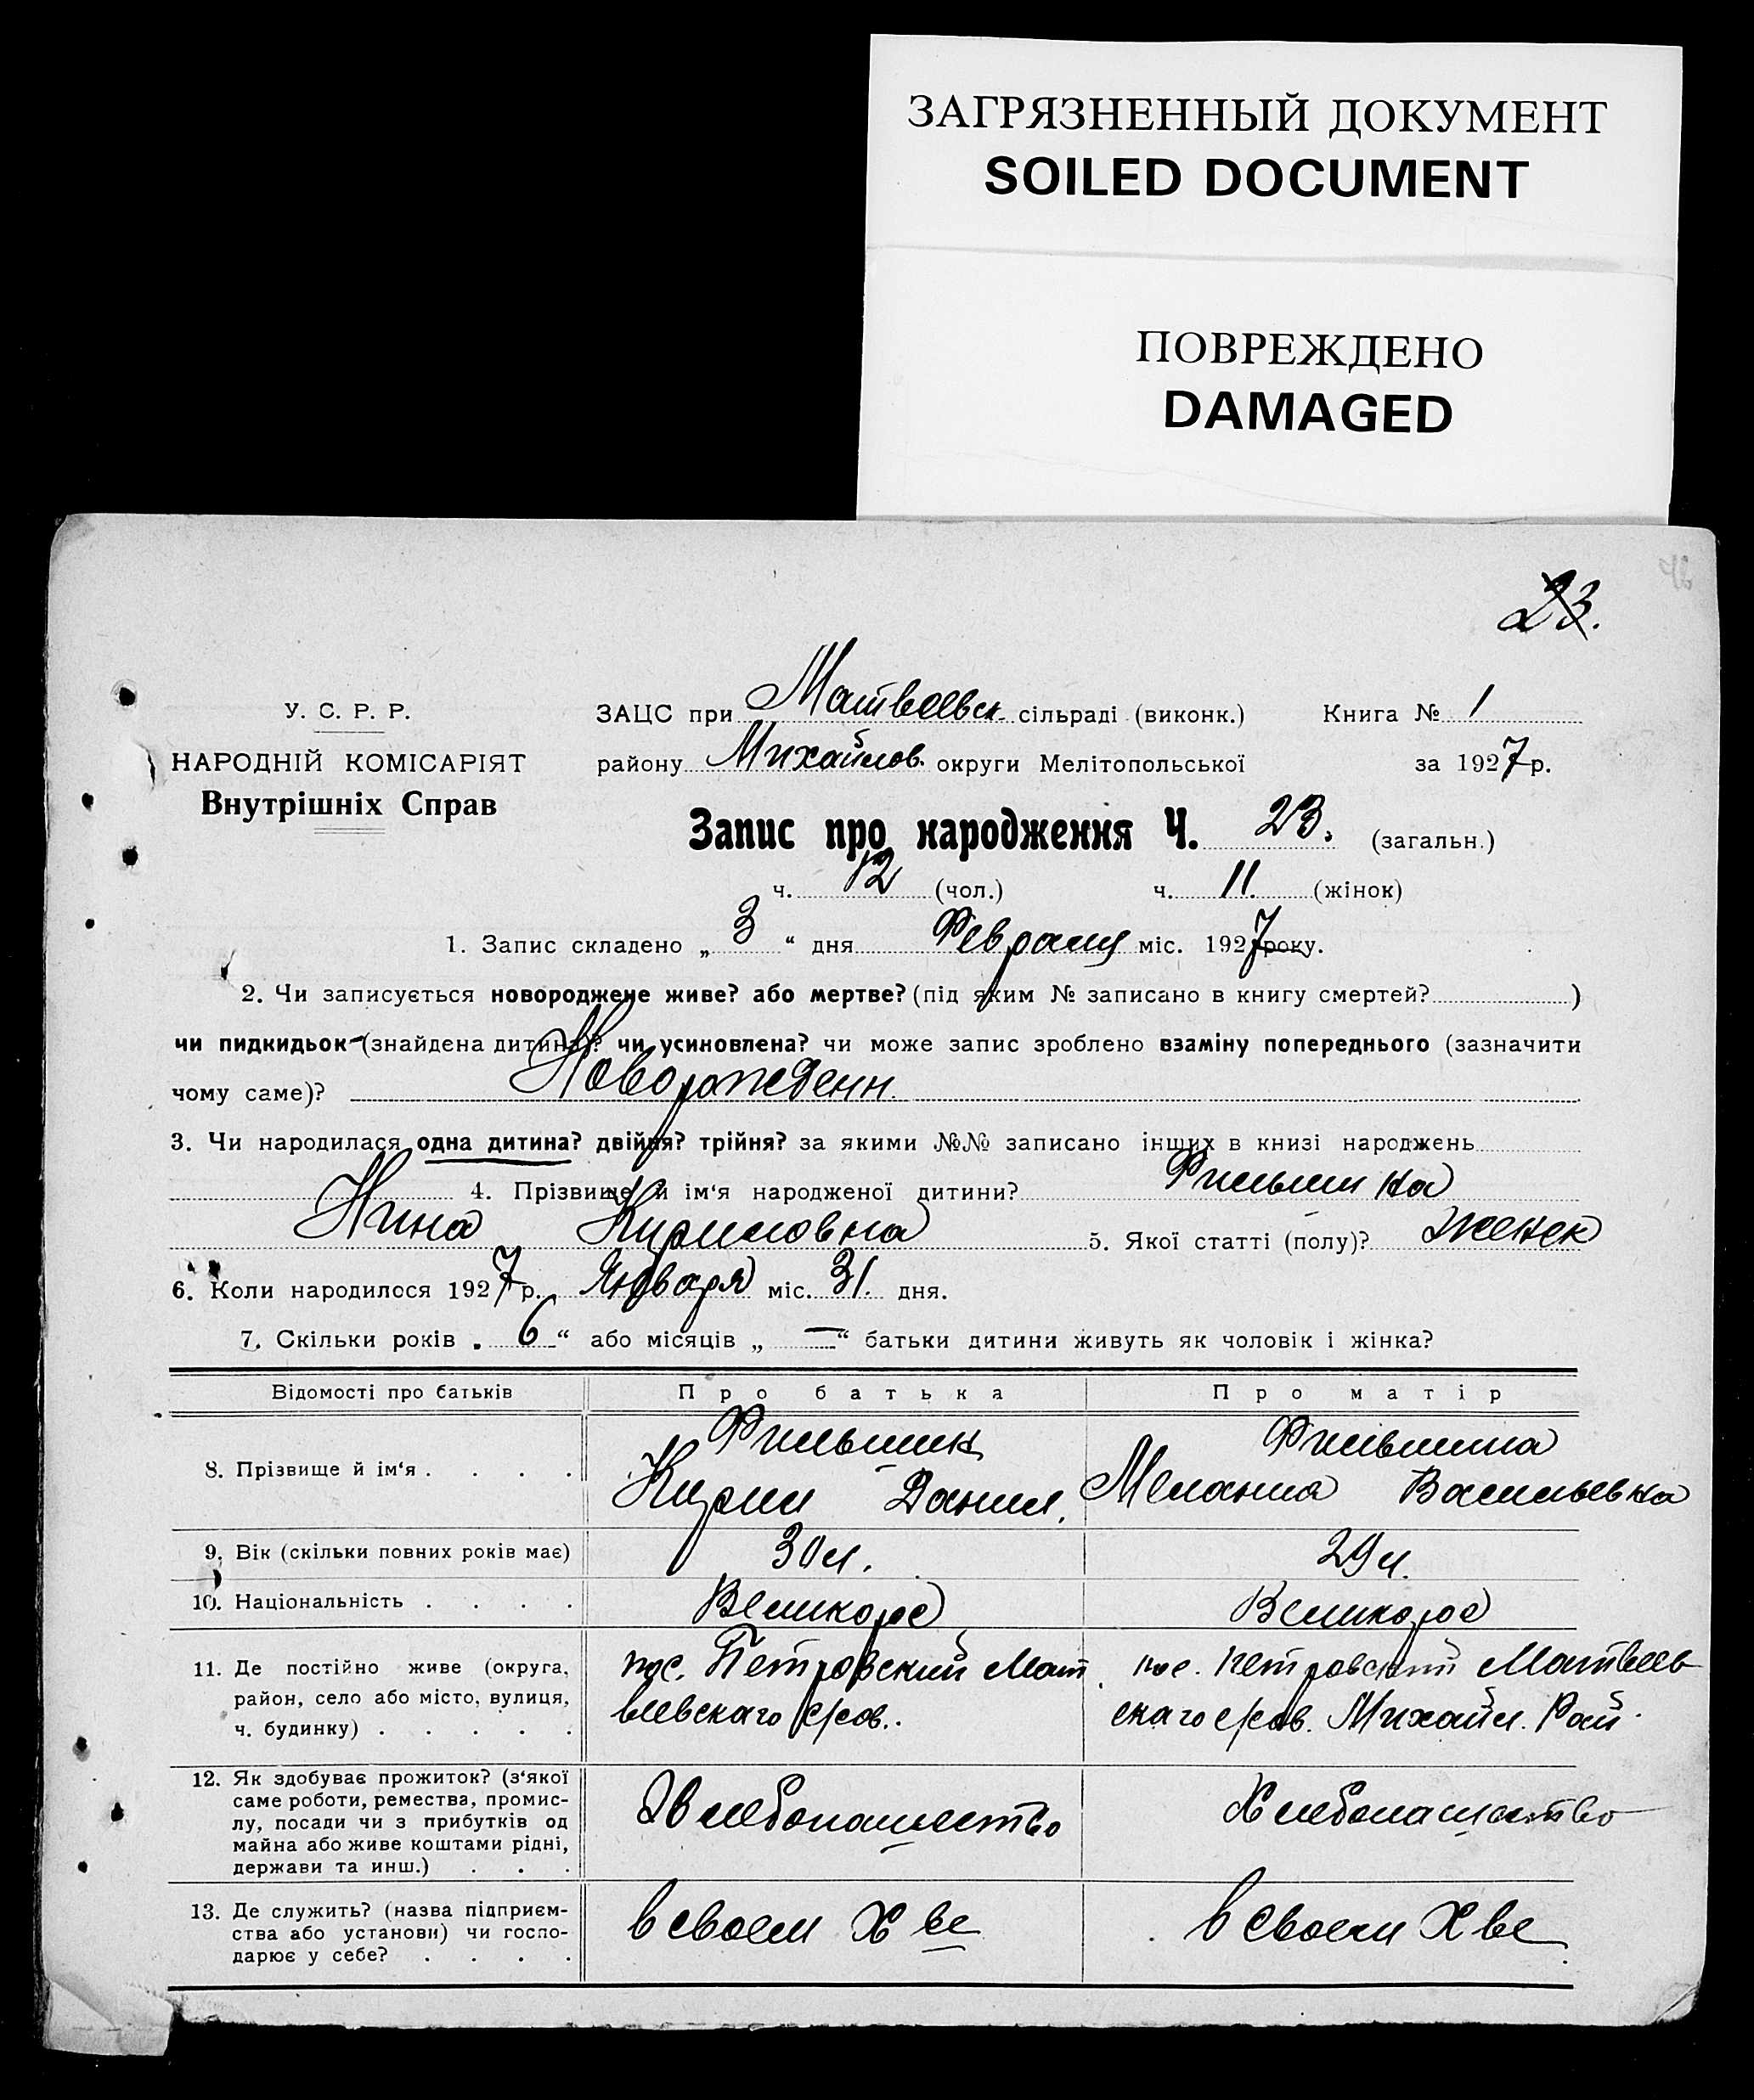 ЗАГРЯЗНЕННЫЙ ДОКУМЕНТ
SOILED DOCUMENT
ПОВРЕЖДЕНО
DAMAGED
23.
У. С. Р. Р.
НАРОДНІЙ КОМІСАРІЯТ
Внутрішніх Справ
ЗАЦС при Матвеевск. сільраді (виконк.) Книга № 1
району Михайлов. округи Мелітопольської за 1927 р.
Запис про народження Ч. 23. (загальн.)
ч. 12 (чол.) ч. 11. (жінок)
1. Запис складено „ 3 “ дня Февраля міс. 1927 року.
2. Чи записується новороджене живе? або мертве? (під яким № записано в книгу смертей? )
чи пидкидьок (знайдена дитина)? чи усиновлена? чи може запис зроблено взаміну попереднього (зазначити
чому саме)? Новорожденн.
3. Чи народилася одна дитина? двійня? трійня? за якими №№ записано інших в книзі народжень
4. Прізвище й ім‘я народженої дитини?
Нина Кириловна 5. Якої статті (полу)? женск
6. Коли народилося 1927 р. Января міс. 31. дня.
7. Скільки років „ 6 “ або місяців „ — “ батьки дитини живуть як чоловік і жінка?
Відомості про батьків Про батька Про матір
8. Прізвище й ім‘я . . . .
Кирил Данил. Мелания Васильевна
9. Вік (скільки повних років має) 30 л. 29 л.
10. Національність . . . . Великорос Великорос
11. Де постійно живе (округа, район, село або місто, вулиця, ч. будинку) . . . . .
пос. Петровский Мат
веевскаго с/сов..
пос. Петровский Матвеев
скаго с/сов. Михайл. Рай.
12. Як здобуває прожиток? (з‘якої
саме роботи, ремества, промис-
лу, посади чи з прибутків од
майна або живе коштами рідні,
держави та инш.) . . .
Хлебопашество Хлебопашество
13. Де служить? (назва підприєм-
ства або установи) чи госпо-
дарює у себе? . . . .
в своем Х ве в своем Х ве